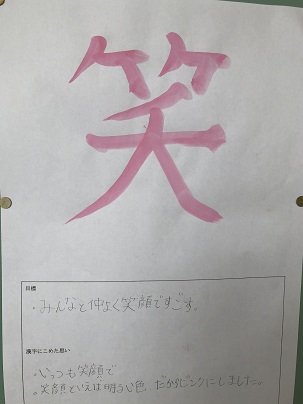 笑
目標
・みんなと仲よく笑顔ですごす。
漢字にこめた思い
・いつも笑顔で
・笑顔といえば明るい色だからピンクにしました。